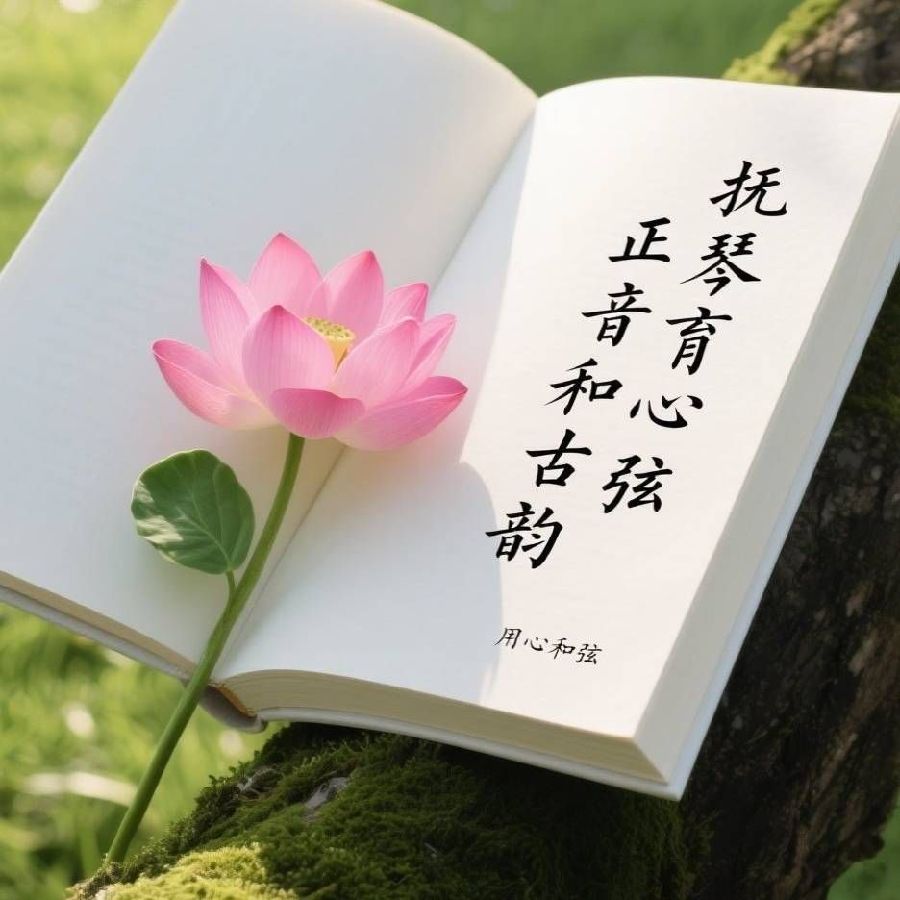 抚琴育心弦
正音和古韵
用心和弦